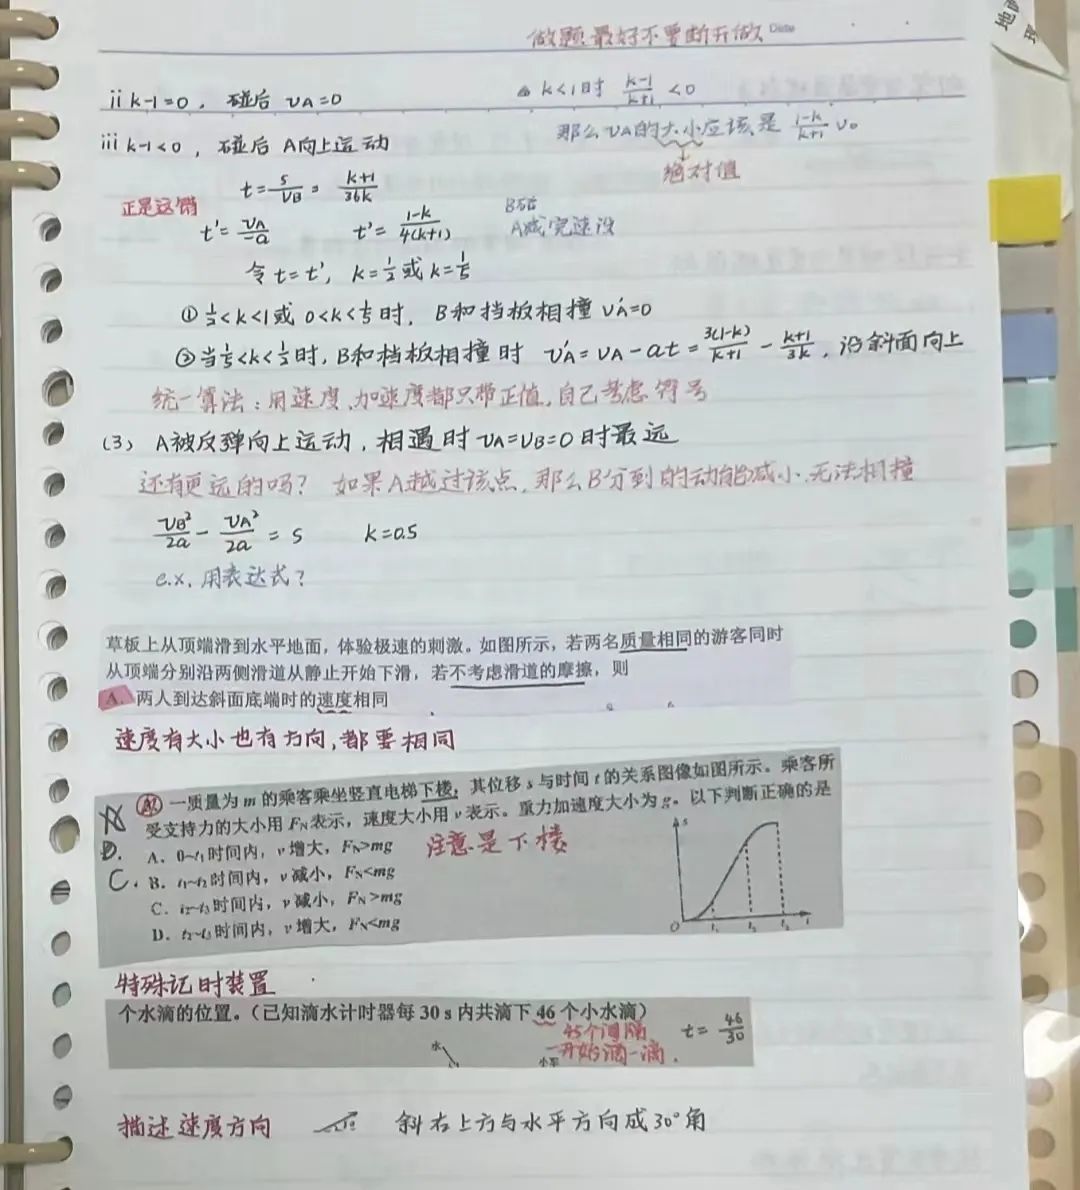 做题最好不要断开做 Date
ii k-1=0，碰后 vA=0
△ k<1时 (k-1)/(k+1) <0
iii k-1<0，碰后 A向上运动
那么vA的大小应该是 (1-k)/(k+1) v₀
绝对值
t = s/vB = (k+1)/36k
正是这错
t' = vA/-a
t' = (1-k)/4(k+1)
A减完速没
令 t=t'，k=1/2 或 k=1/5
① 1/2<k<1或 0<k<1/5 时，B和挡板相撞 vA'=0
② 当1/5<k<1/2时，B和档板相撞时 vA'=vA-at= 3(1-k)/(k+1) - (k+1)/3k，沿斜面向上
统一算法：用速度、加速度都只带正值，自己考虑符号
(3) A被反弹向上运动，相遇时vA=vB=0时最远
还有更远的吗？如果A越过该点，那么B分到的动能减小，无法相撞
vB²/2a - vA²/2a = s k=0.5
e.x. 用表达式？
草板上从顶端滑到水平地面，体验极速的刺激。如图所示，若两名质量相同的游客同时
从顶端分别沿两侧滑道从静止开始下滑，若不考虑滑道的摩擦，则
A. 两人到达斜面底端时的速度相同
速度有大小也有方向，都要相同
一质量为 m 的乘客乘坐竖直电梯下楼，其位移 s 与时间 t 的关系图像如图所示。乘客所
受支持力的大小用 FN 表示，速度大小用 v 表示。重力加速度大小为 g。以下判断正确的是
D.
A．0~t₁时间内，v 增大，FN>mg
注意是下楼
C.
B．t₁~t₂时间内，v 减小，FN<mg
C．t₂~t₃时间内，v 减小，FN>mg
D．t₂~t₃时间内，v 增大，FN<mg
s
O t₁ t₂ t₃ t
特殊记时装置
个水滴的位置。（已知滴水计时器每 30 s 内共滴下 46 个小水滴）
45个间隔
t = 46/30
一开始滴一滴.
水
小车
描述速度方向
斜右上方与水平方向成30°角